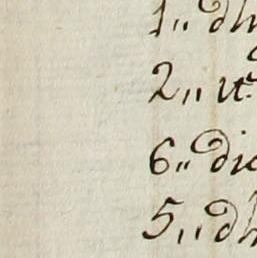 1,, dh
2,, it:
6,, die
5,, dh